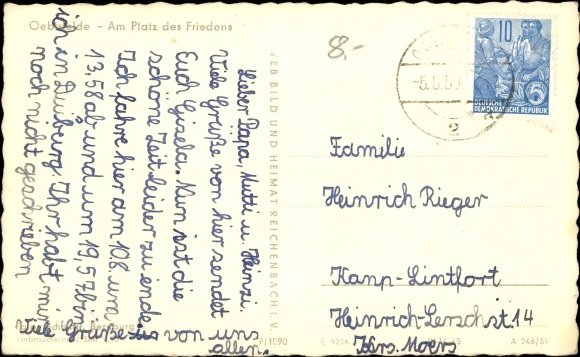 Oebisfelde - Am Platz des Friedens
8,-
Lieber Papa, Mutti u. Heinzi
Viele Grüße von hier sendet
Euch Gisela. Nun ist die
schöne Zeit leider zu ende.
Ich fahre hier am 10.8. um
13,58 ab und um 19,57 bin
ich in Duisburg. Ihr habt mir
noch nicht geschrieben
Viele Grüße von uns
allen.
VEB BILD UND HEIMAT REICHENBACH I. V.
10
DEUTSCHE
DEMOKRATISCHE REPUBLIK
5
Familie
Heinrich Rieger
Kamp-Lintfort
Heinrich-Lerschst. 14
Krs. Moers
A 246/59